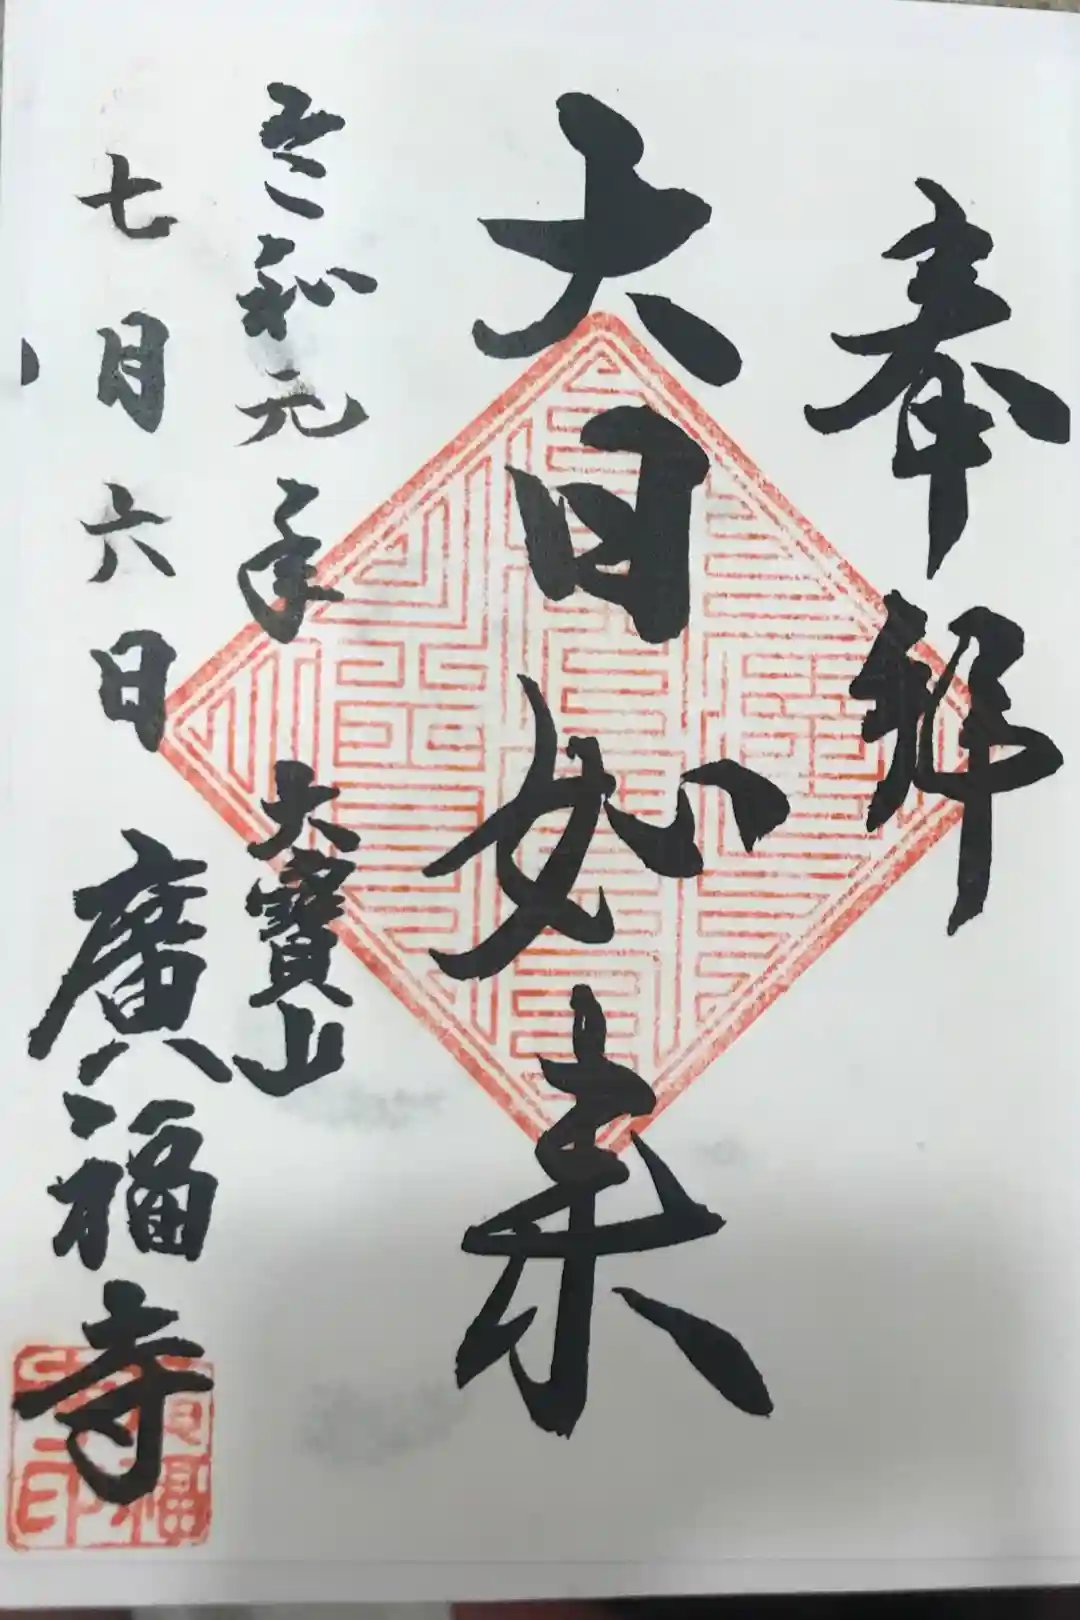 奉拝
大日如来
令和元年 大寶山
七月六日 廣福寺